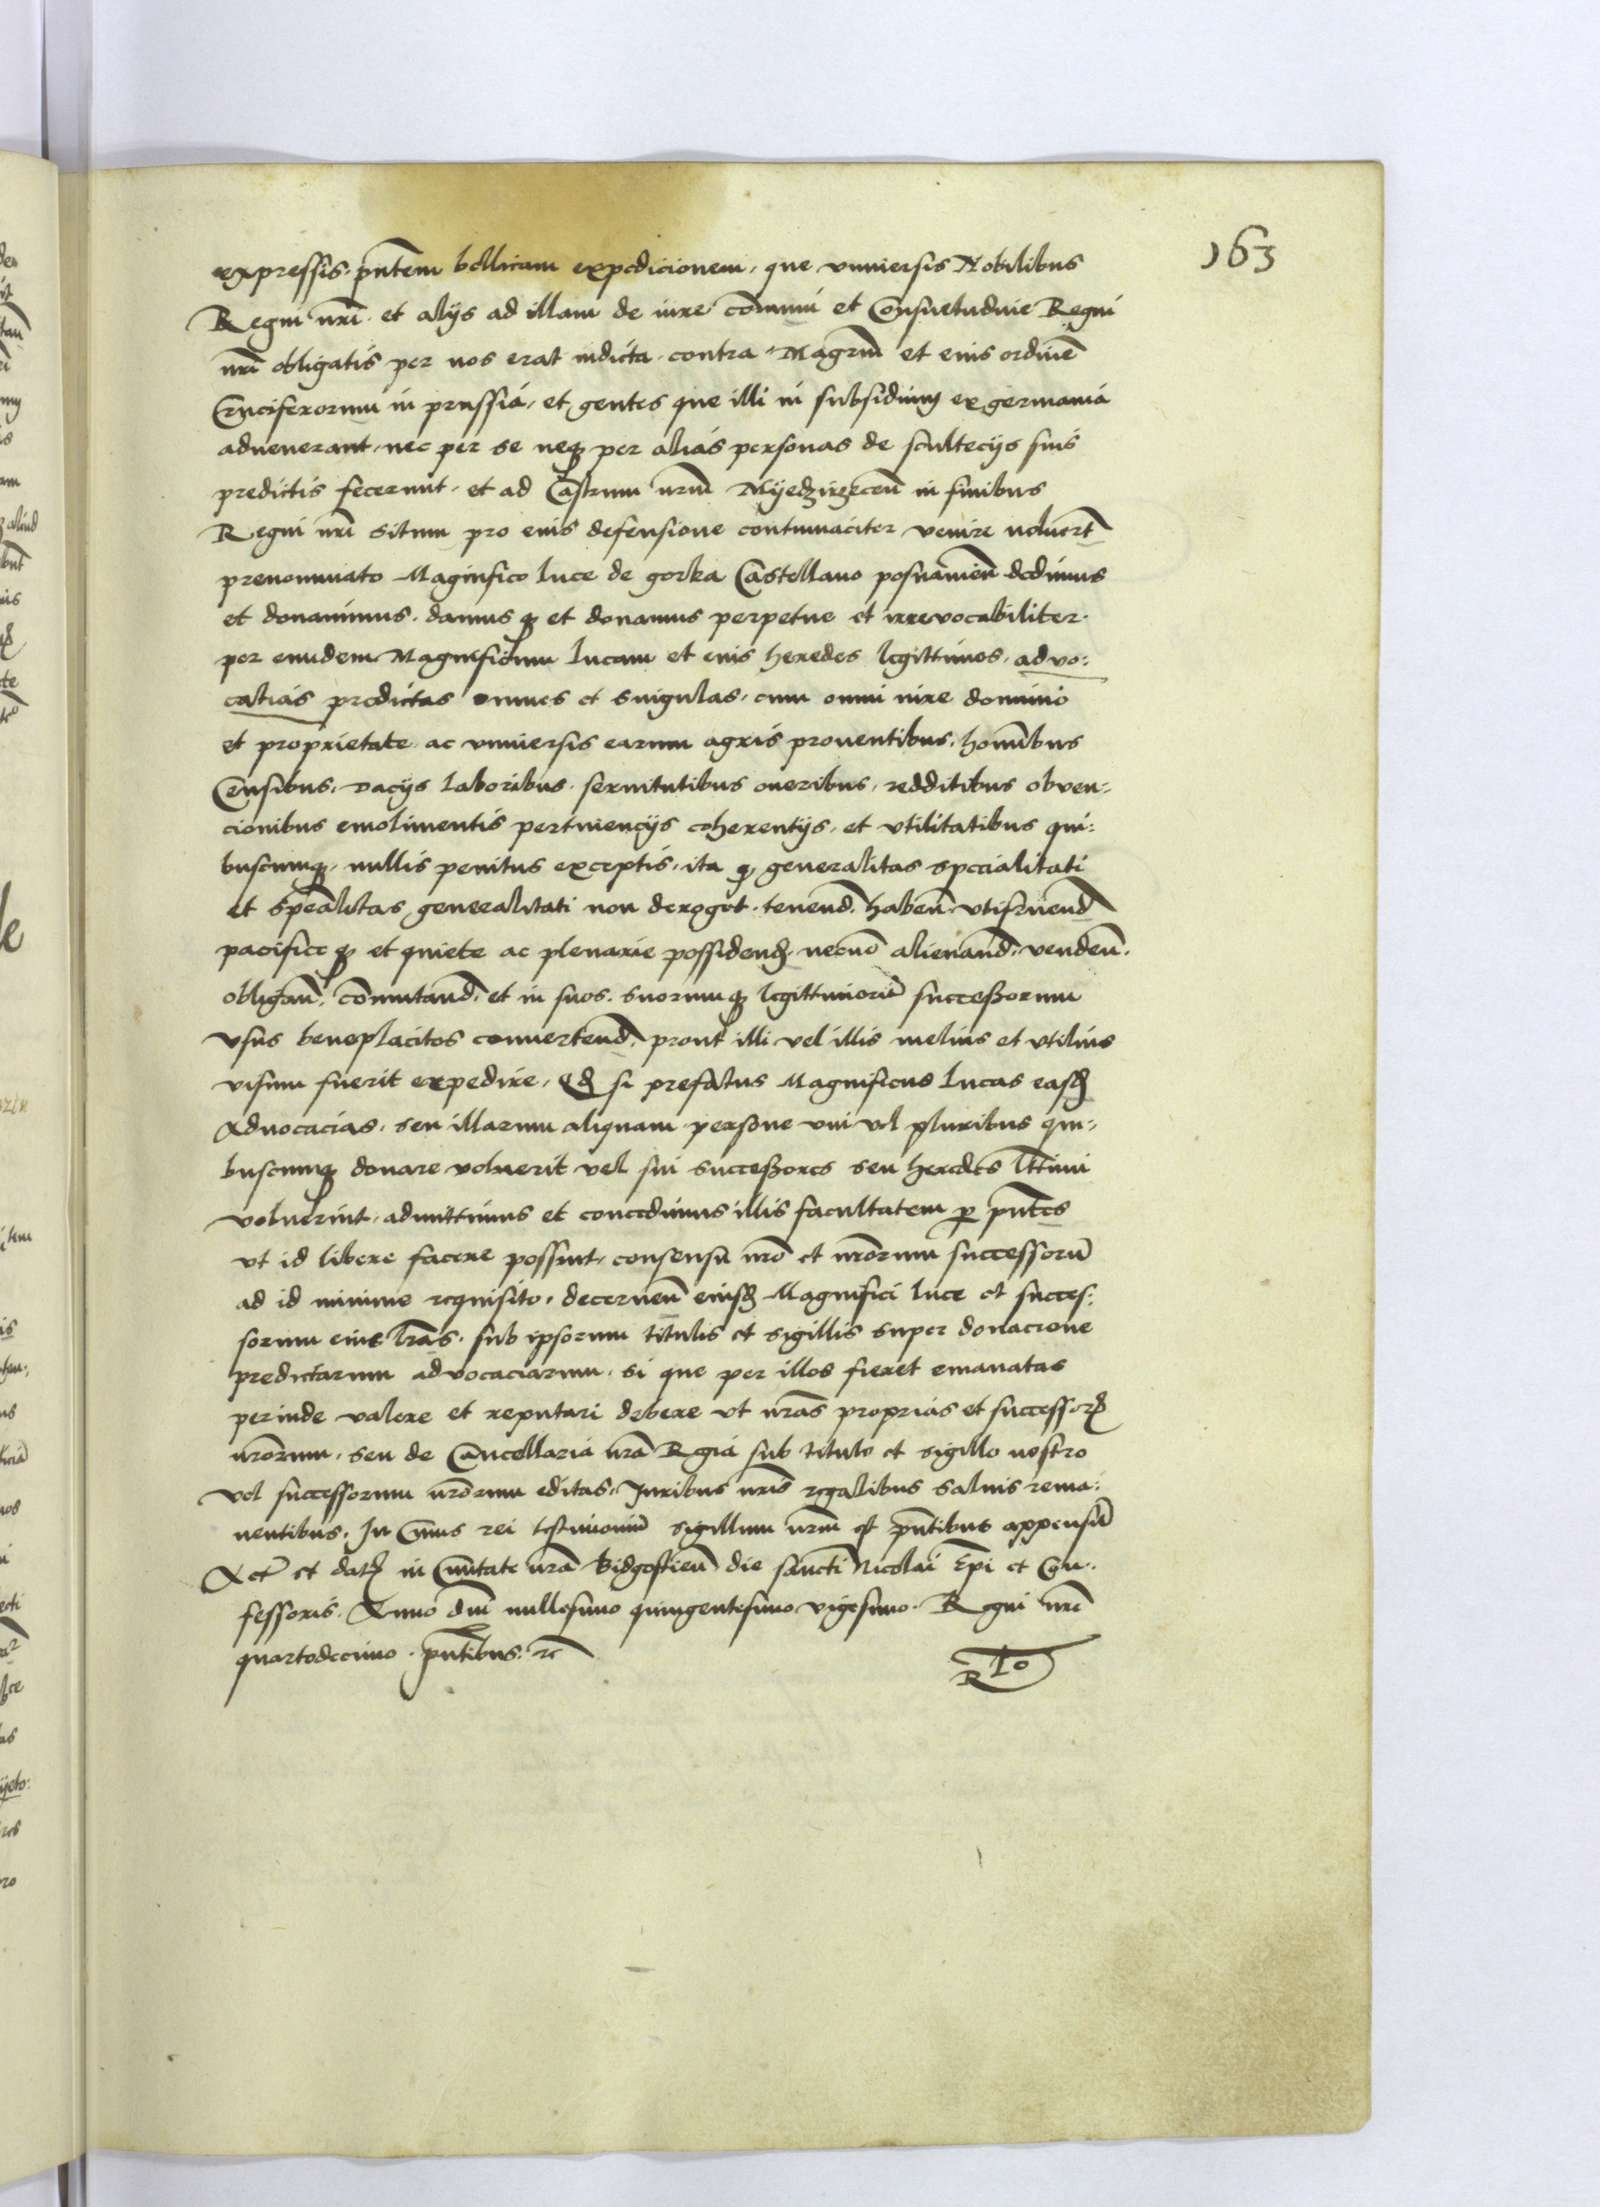 163
expressis. pñtem bellicam expedicionem, que vniuersis Nobilibus
Regni nr̃i et alijs ad illam de iure com̃uni et Consuetudine Regni
nr̃i obligatis per nos erat indicta contra Magr̃m et eius ordinẽ
Cruciferorum in prussia, et gentes que illi in subsidium ex germania
aduenerant, nec per se neqz per alias personas de scultecijs suis
predictis fecerunt, et ad Castrum nr̃m Myedzirzeceñ in finibus
Regni nr̃i situm pro eius defensione contumaciter venire noluert̃
prenominato Magnifico luce de gorka Castellano posnanieñ dedimus
et donauimus. damus qz et donamus perpetue et irreuocabiliter.
per eundem Magnificum lucam et eius heredes legittimos, aduo:
catias predictas omnes et singulas, cum omni iure dominio
et proprietate ac vniuersis earum agris prouentibus. hominibus
Censibus, Dacijs laboribus. seruitutibus oneribus, redditibus obuen:
cionibus emolimentis pertinencijs coherentijs, et vtilitatibus qui:
buscumqz, nullis penitus exceptis, ita qz generalitas specialitati
et sp̃ealitas generalitati non deroget. tenend̃. habeñ. vtifruend̃
pacifice qz et quiete ac plenarie possidend̃. necnõ alienand̃. vendeñ.
obligañ. com̃utand̃. et in suos. suorumqz legittimorũ successorum
vsus beneplacitos conuertend̃. prout illi vel illis melius et vtilius
visum fuerit expedire, Qd̃ si prefatus Magnificus lucas easd̃
Aduocacias, seu illarum aliquam persone vni vel pluribus qui:
buscumqz donare voluerit vel sui successores seu heredes ltt̃imi
voluerint, admittimus et concedimus illis facultatem per pñtes
vt id libere facere possint, consensu nr̃o et nr̃orum successorũ
ad id minime requisito, decerneñ eiusd̃ Magnifici luce et succes:
sorum eius lr̃as, sub ipsorum titulis et sigillis super donacione
predictarum aduocaciarum, si que per illos fieret emanatas
perinde valere et reputari debere vt nr̃as proprias et successorũ
nr̃orum, seu de Cancellaria nr̃a Regia sub titulo et sigillo nostro
vel successorum nr̃orum editas, Juribus nr̃is regalibus saluis rema:
nentibus. In Cuius rei testimoniũ sigillum nr̃m est pñtibus appensũ
Act̃ et dat̃ in Ciuitate nr̃a bidgostieñ die sancti Nicolai Ep̃i et Con:
fessoris. Anno dñi millesimo quingentesimo vigesimo. Regni nr̃i
quartodecimo. pñtibus. rc